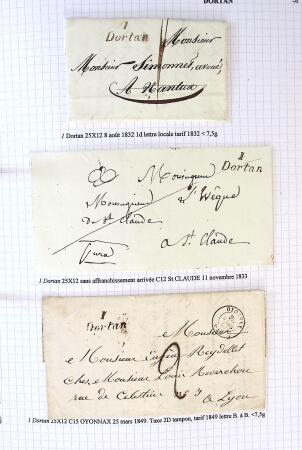 DORTAN
1
Dortan
Monsieur
Monsieur Simonnet, avoué,
A Nantua
1 Dortan 25X12 8 août 1832 1d lettre locale tarif 1832 < 7,5g
1
Dortan
Monseigneur
Monseigneur l'Evêque
de St Claude
Jura
a St Claude
1 Dortan 25X12 sans affranchissement arrivée C12 St CLAUDE 11 novembre 1833
1
Dortan
OYONNAX
Monsieur
Monsieur Eugène Reydellet
Chez Monsieur Louis
rue de
a Lyon
2
1 Dortan 25X12 C15 OYONNAX 25 mars 1849. Taxe 2D tampon, tarif 1849 lettre B. à B. <7,5g